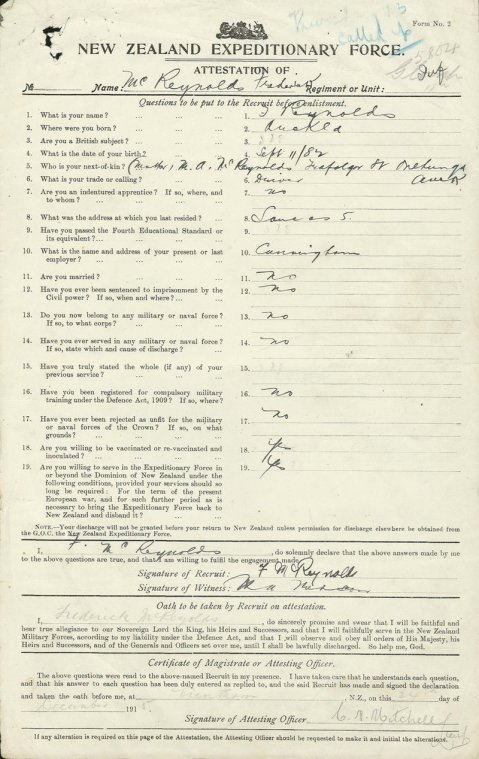 Form No. 2
called up
NEW ZEALAND EXPEDITIONARY FORCE.
ATTESTATION OF
No. Name: McReynolds Frederick Regiment or Unit:
Questions to be put to the Recruit before enlistment.
1. What is your name? ... 1. F McReynolds
2. Where were you born? ... 2. Auckld
3. Are you a British subject? ... 3.
4. What is the date of your birth? ... 4. Sept 11/82
5. Who is your next-of-kin? (Mother) M. A. McReynolds Trafalgar St Onehunga
Auck
6. What is your trade or calling? 6. Driver
7. Are you an indentured apprentice? If so, where, and 7. no
to whom? ...
8. What was the address at which you last resided? ... 8. Same as 5.
9. Have you passed the Fourth Educational Standard or 9.
its equivalent? ...
10. What is the name and address of your present or last 10. Cunningham
employer? ...
11. Are you married? ... 11. no
12. Have you ever been sentenced to imprisonment by the 12. no
Civil power? If so, when and where? ...
13. Do you now belong to any military or naval force? 13. no
If so, to what corps? ...
14. Have you ever served in any military or naval force? 14. no
If so, state which and cause of discharge? ...
15. Have you truly stated the whole (if any) of your 15.
previous service? ...
16. Have you been registered for compulsory military 16. no
training under the Defence Act, 1909? If so, where?
17. Have you ever been rejected as unfit for the military 17. no
or naval forces of the Crown? If so, on what
grounds? ...
18. Are you willing to be vaccinated or re-vaccinated and 18. yes
inoculated? ...
19. Are you willing to serve in the Expeditionary Force in 19. yes
or beyond the Dominion of New Zealand under the
following conditions, provided your services should so
long be required: For the term of the present
European war, and for such further period as is
necessary to bring the Expeditionary Force back to
New Zealand and disband it? ...
NOTE.—Your discharge will not be granted before your return to New Zealand unless permission for discharge elsewhere be obtained from
the G.O.C. the New Zealand Expeditionary Force.
I, F. McReynolds, do solemnly declare that the above answers made by me
to the above questions are true, and that I am willing to fulfil the engagement made.
Signature of Recruit: F McReynolds
Signature of Witness: M A
Oath to be taken by Recruit on attestation.
I, Frederick McReynolds, do sincerely promise and swear that I will be faithful and
bear true allegiance to our Sovereign Lord the King, his Heirs and Successors, and that I will faithfully serve in the New Zealand
Military Forces, according to my liability under the Defence Act, and that I will observe and obey all orders of His Majesty, his
Heirs and Successors, and of the Generals and Officers set over me, until I shall be lawfully discharged. So help me, God.
Certificate of Magistrate or Attesting Officer.
The above questions were read to the above-named Recruit in my presence. I have taken care that he understands each question,
and that his answer to each question has been duly entered as replied to, and the said Recruit has made and signed the declaration
and taken the oath before me, at , N.Z., on this day of
December 191
Signature of Attesting Officer C. N. Mitchell
If any alteration is required on this page of the Attestation, the Attesting Officer should be requested to make it and initial the alterations.